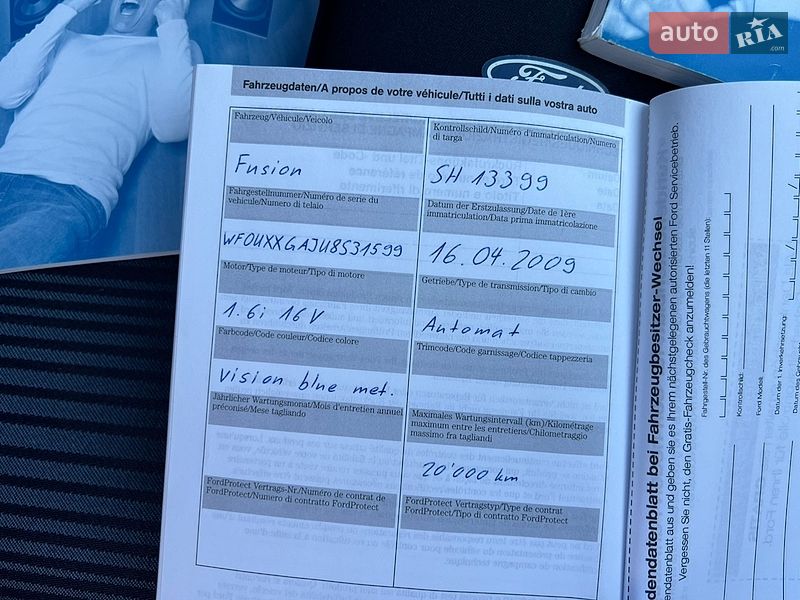 auto RIA .com
Ford
Fahrzeugdaten/A propos de votre véhicule/Tutti i dati sulla vostra auto
Fahrzeug/Véhicule/Veicolo
Fusion
Kontrollschild/Numéro d'immatriculation/Numero
di targa
SH 13399
Fahrgestellnummer/Numéro de serie du
vehicule/Numero di telaio
WF0UXXGAJU8S31599
Datum der Erstzulassung/Date de 1ère
immatriculation/Data prima immatricolazione
16.04.2009
Motor/Type de moteur/Tipo di motore
1.6i 16V
Getriebe/Type de transmission/Tipo di cambio
Automat
Farbcode/Code couleur/Codice colore
vision blue met.
Trimcode/Code garnissage/Codice tappezzeria
Jährlicher Wartungsmonat/Mois d'entretien annuel
préconisé/Mese tagliando
Maximales Wartungsintervall (km)/Kilométrage
maximum entre les entretiens/Chilometraggio
massimo fra tagliandi
20'000 km
FordProtect Vertrags-Nr./Numéro de contrat de
FordProtect/Numero di contratto FordProtect
FordProtect Vertragstyp/Type de contrat
FordProtect/Tipo di contratto FordProtect
dendatenblatt bei Fahrzeugbesitzer-Wechsel
endatenblatt aus und geben sie es Ihrem nächstgelegenen autorisierten Ford Servicebetrieb.
Vergessen Sie nicht, den Gratis-Fahrzeugcheck anzumelden!
Fahrgestell-Nr. des Gebrauchtwagens (die letzten 11 Stellen):
Kontrollschild:
Ford Modell:
Datum der 1. Inverkehrsetzung: